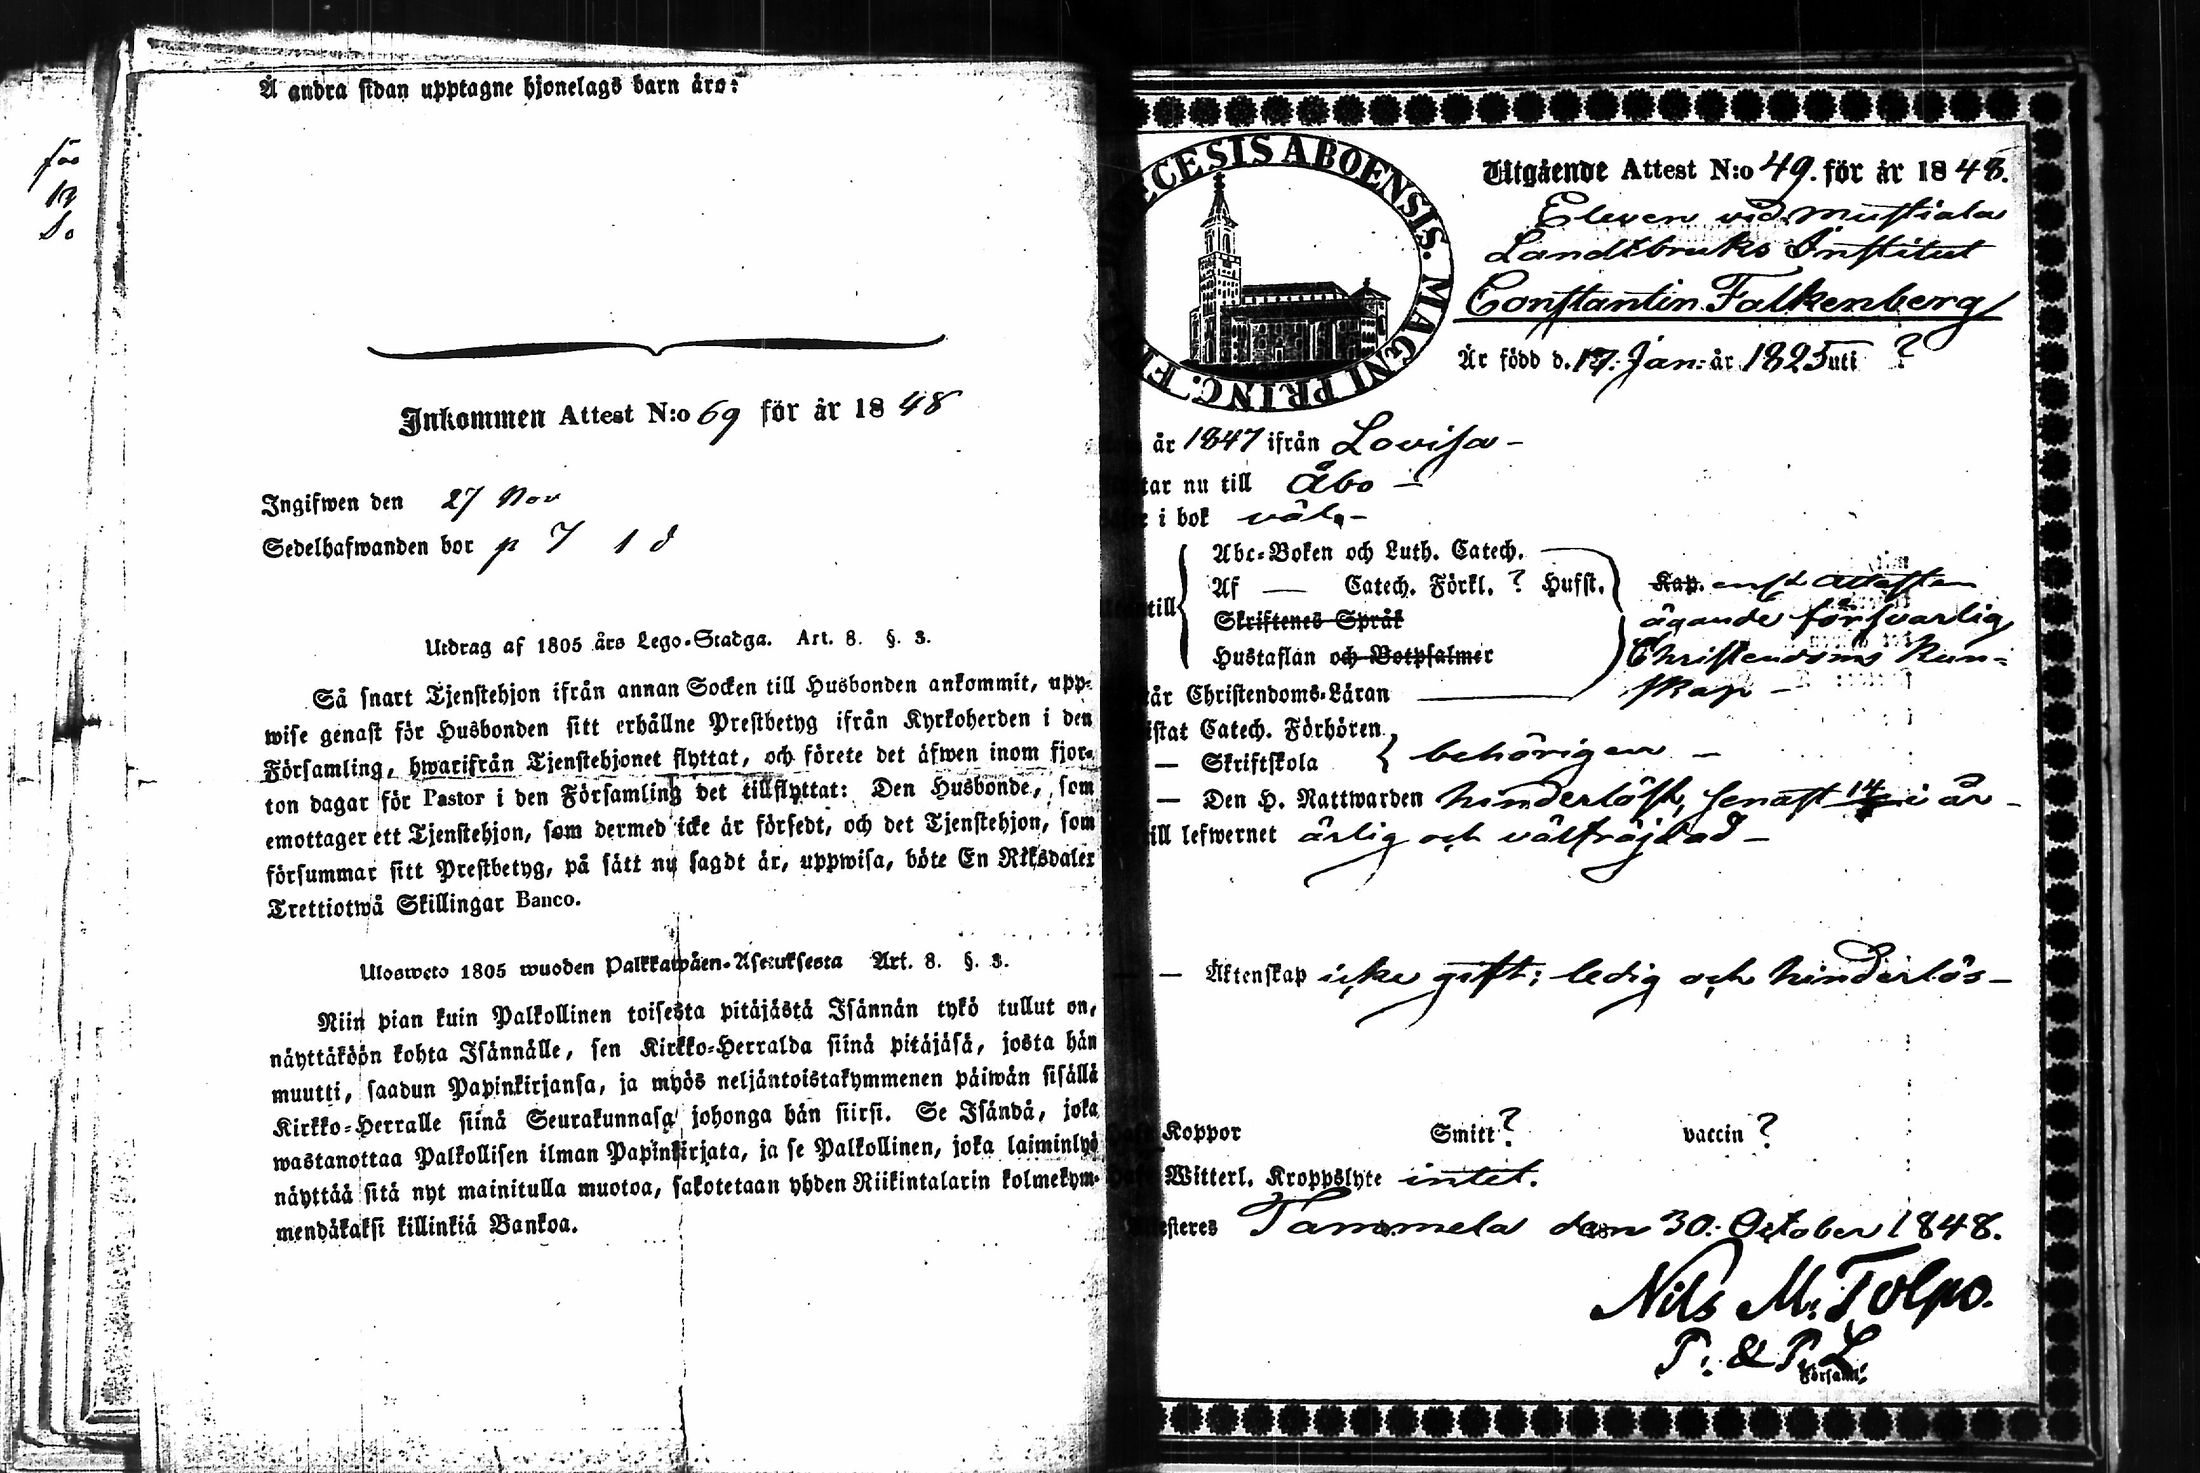 Å andra sidan upptagne hjonelags barn äro:
Inkommen Attest N:o 69 för år 1848
Ingifwen den 27 Nov
Sedelhafwanden bor p 7 1 d
Utdrag af 1805 års Lego-Stadga. Art. 8. §. 3.
Så snart Tjenstehjon ifrån annan Socken till Husbonden ankommit, upp-
wise genast för Husbonden sitt erhållne Prestbetyg ifrån Kyrkoherden i den
Församling, hwarifrån Tjenstehjonet flyttat, och förete det äfwen inom fjor-
ton dagar för Pastor i den Församling det tillflyttat: Den Husbonde, som
emottager ett Tjenstehjon, som dermed icke är försedt, och det Tjenstehjon, som
försummar sitt Prestbetyg, på sätt nu sagdt är, uppwisa, böte En Riksdaler
Trettiotwå Skillingar Banco.
Ulosweto 1805 wuoden Palkkawäen-Asetuksesta Art. 8. §. 3.
Niin pian kuin Palkollinen toisesta pitäjästä Isännän tykö tullut on,
näyttäköön kohta Isännälle, sen Kirkko-Herralda siinä pitäjäsä, josta hän
muutti, saadun Papinkirjansa, ja myös neljäntoistakymmenen päiwän sisällä
Kirkko-Herralle siinä Seurakunnasa johonga hän siirsi. Se Isändä, joka
wastanottaa Palkollisen ilman Papinkirjata, ja se Palkollinen, joka laiminlyö
näyttää sitä nyt mainitulla muotoa, sakotetaan yhden Riikintalarin kolmekym-
mendäkaksi killinkiä Bankoa.
ECESIS ABOENSIS. MAGNI PRINC. F
Utgående Attest N:o 49. för år 1848.
Eleven vid Mustiala
Landtbruks Institut
Constantin Falkenberg
Är född d. 17. Jan: år 1825 uti ?
år 1847 ifrån Lovisa –
tar nu till Åbo –
i bok väl, –
Abc-Boken och Luth. Catech.
Af — Catech. Förkl. ? Hufst. Kap. enl. attesten
till Skriftenes Språk ägande försvarlig
Hustaflan och Botpsalmer Christendoms kun-
är Christendoms-Läran skap –
istat Catech. Förhören
— Skriftskola behörigen –
— Den H. Nattwarden hinderlöst, senast 14 i år –
till lefwernet ärlig och välfräjdad –
— Äktenskap icke gift; ledig och hinderlös –
Koppor Smitt ? vaccin ?
Witterl. Kroppslyte intet.
esteres Tammela den 30. October 1848.
Nils M. Tolpo.
P. & P. L.
Församl.